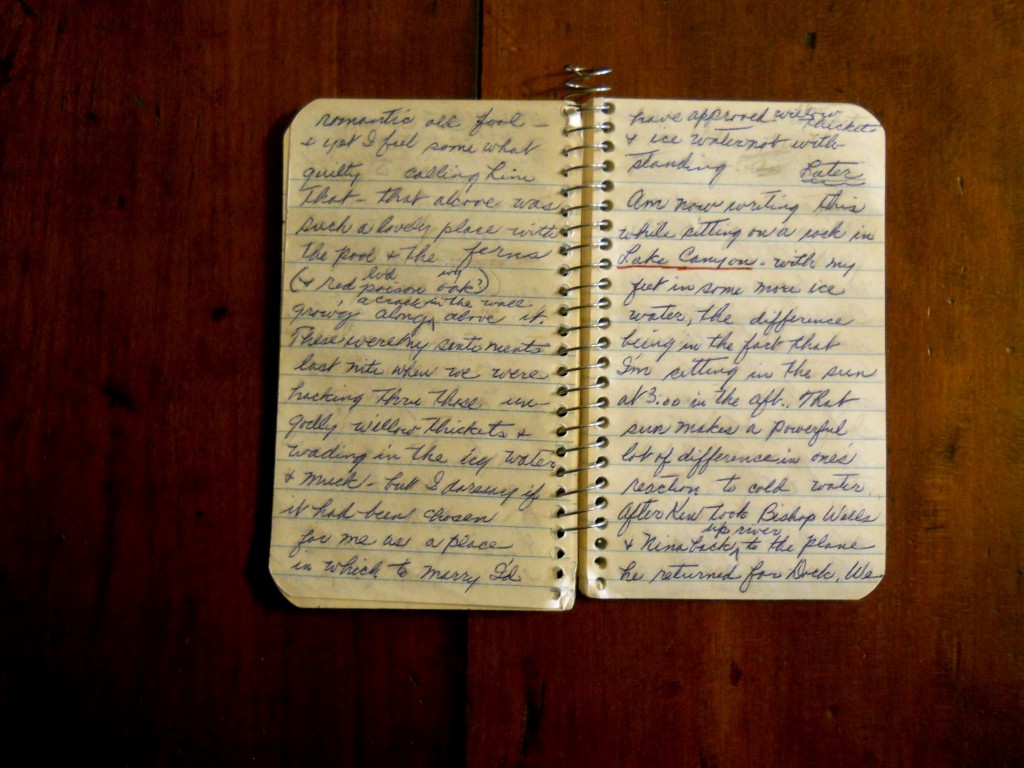 romantic old fool -
& yet I feel some what
guilty calling him
that - that alcove was
such a lovely place with
the pool & the ferns
(& red poison oak?)
growing along a crack in the wall above it.
These were my sentiments
last nite when we were
hacking thru those un-
godly willow thickets &
wading in the icy water
& muck - but I daresay if
it had been chosen
for me as a place
in which to marry I'd
have approved willow thickets
& ice water not with-
standing
Later
Am now writing this
while sitting on a rock in
Lake Canyon - with my
feet in some more ice
water, the difference
being in the fact that
I'm sitting in the sun
at 3:00 in the aft.. That
sun makes a powerful
lot of difference in one's
reaction to cold water.
After Kew took Bishop Wells
& Nina back up river to the plane
he returned for Dock. We